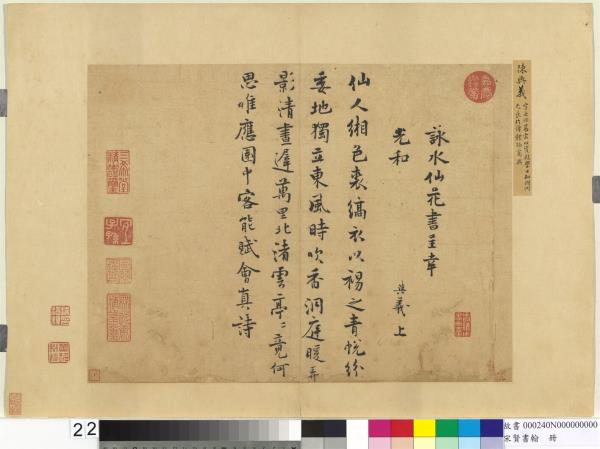 陳與義
詠水仙花書呈幸
光和
與義上
仙人緗色裘縞衣以裼之青帨紛
委地獨立東風時吹香洞庭暖弄
影清晝遲萬里北渚雲亭亭竟何
思唯應園中客能賦會真詩
22
故書 000240N000000000
宋賢書翰 冊